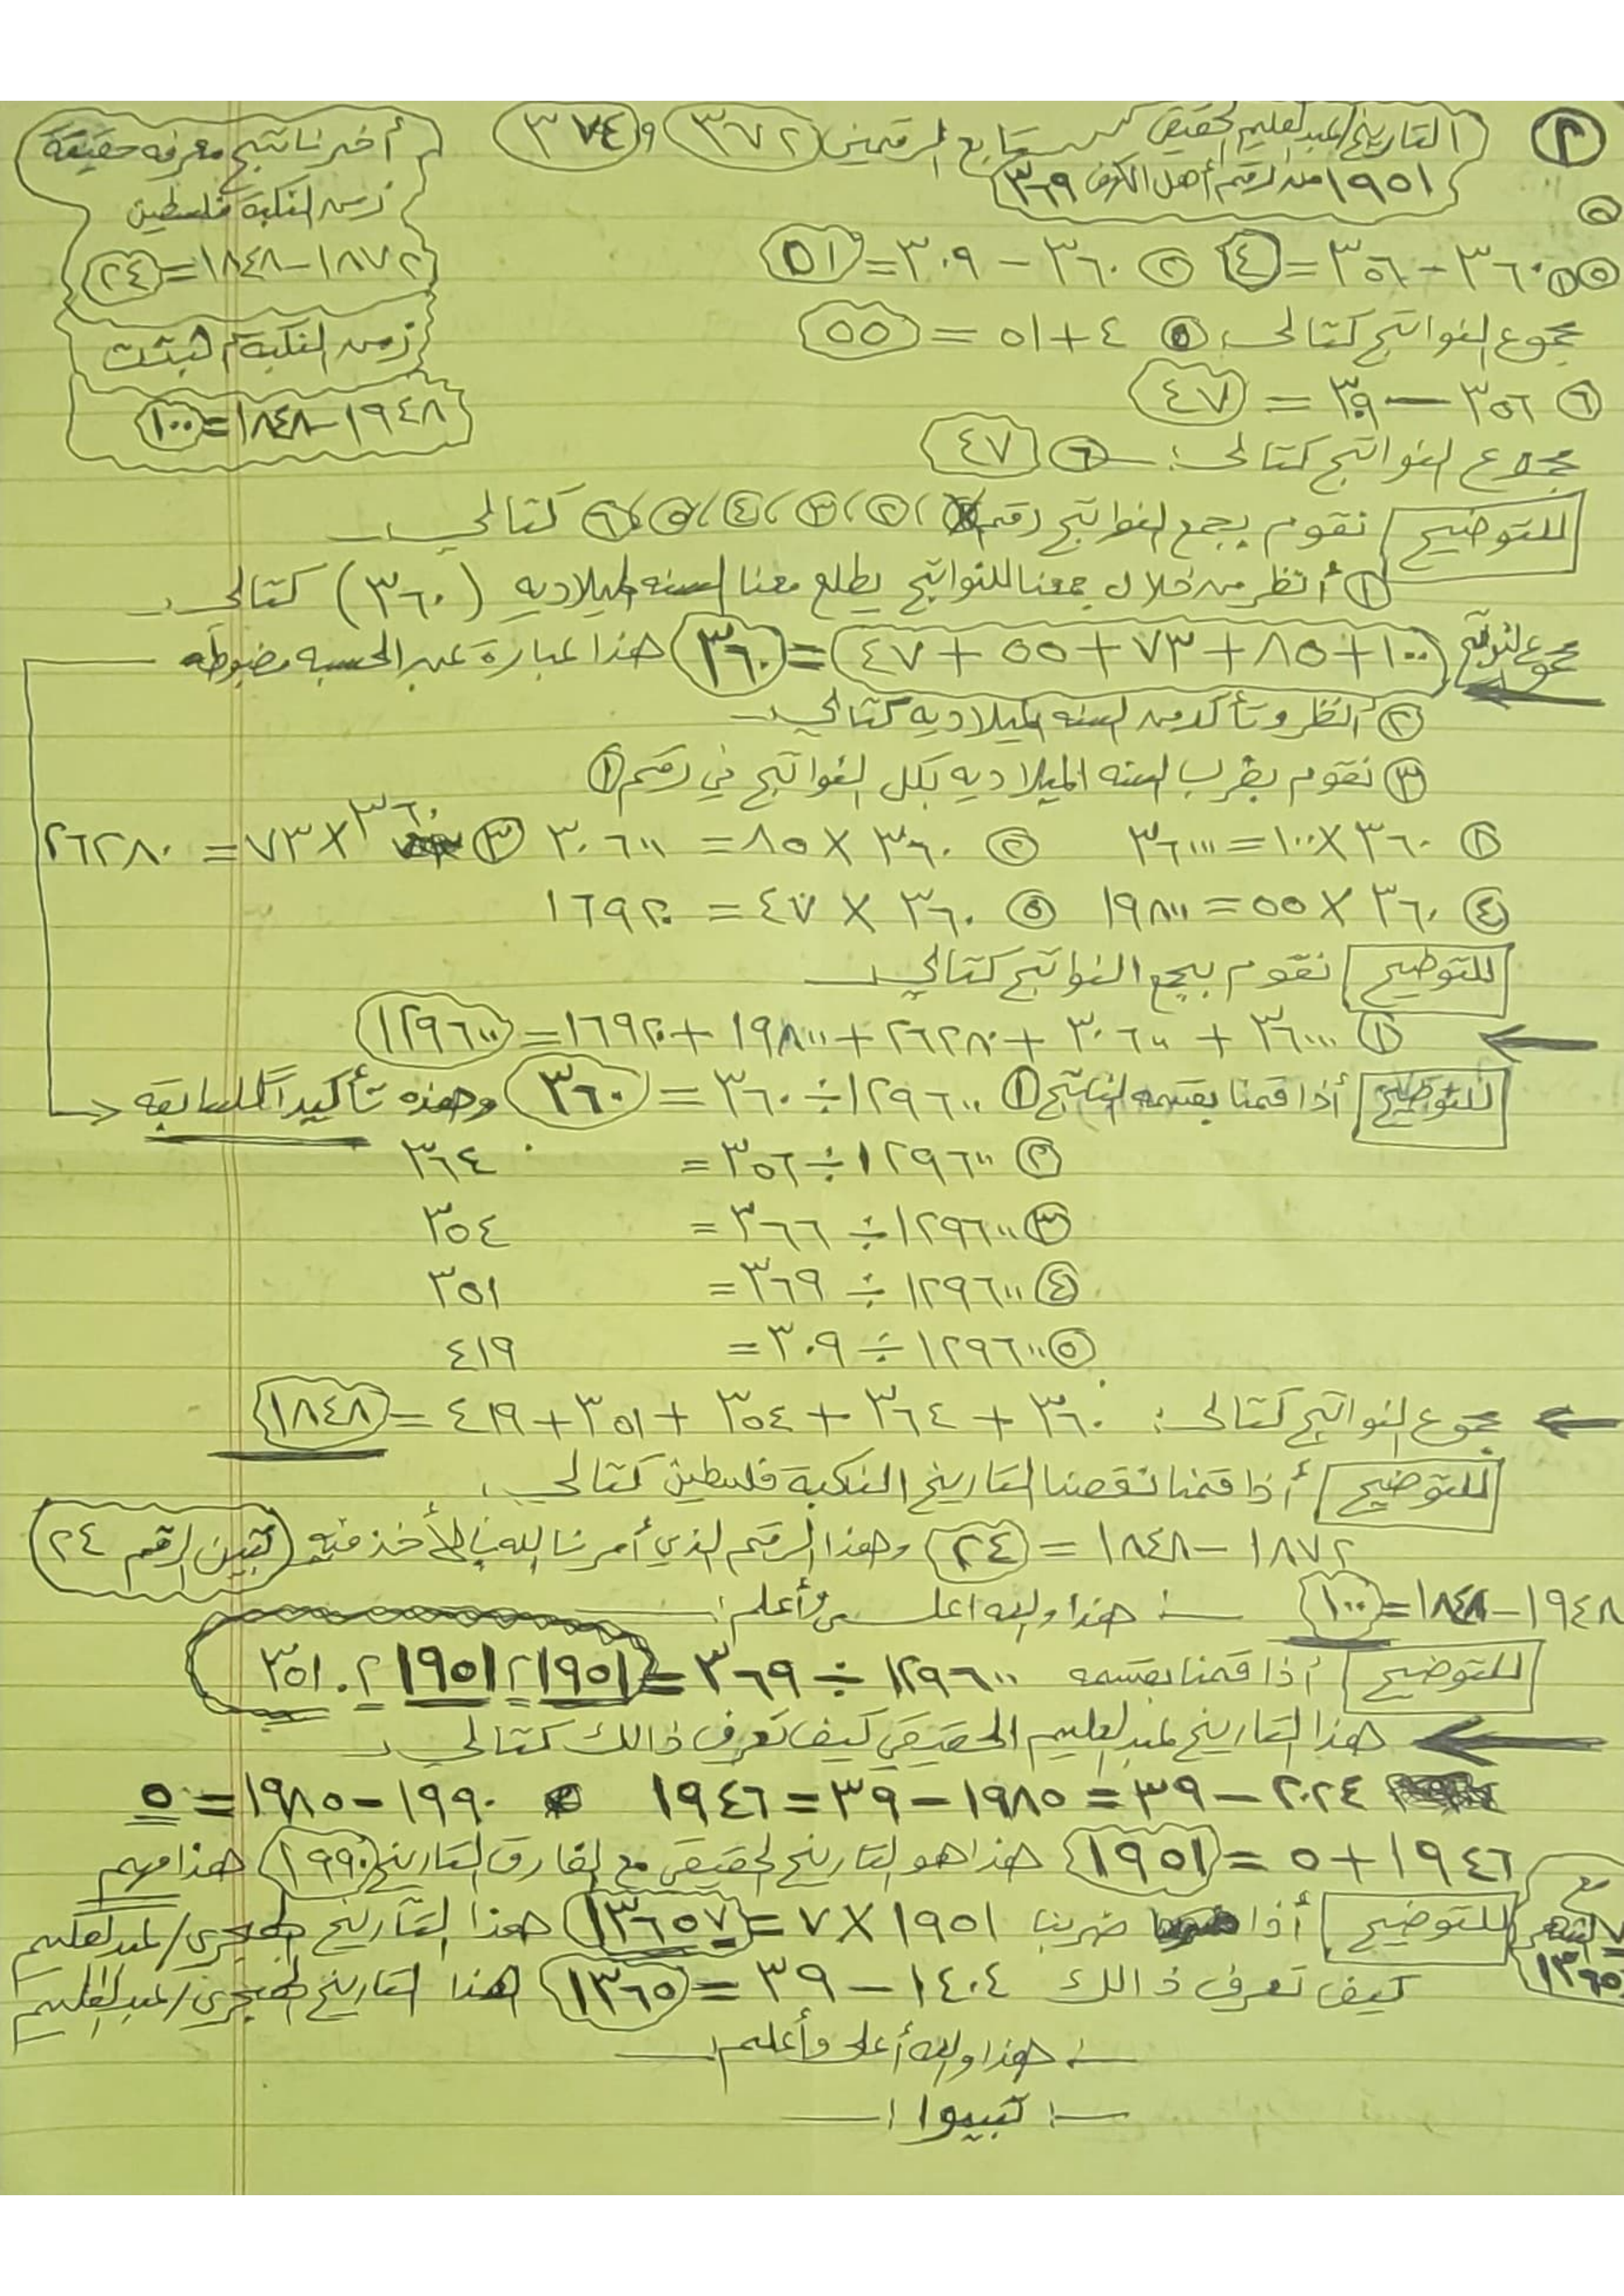 ٢
التاريخ/عبدالعليم الحقيقي تابع الرقمين ٣٧٢ و ٣٧٤
١٩٥١ من الرقم أهل الكهف ٣٦٩
أخر ناتج معرفه حقيقة
زمن النكبة فلسطين
١٨٧٢-١٨٤٨=٢٤
زمن النكبة
١٩٤٨-١٨٤٨=١٠٠
٥
٥ ١ ٣٦٠-٣٥٦=٤ ٢ ٣٦٠-٣٠٩=٥١
مجموع النواتج كتالى: ٥ ٤+٥١=٥٥
٦ ٣٥٦-٣٠٩=٤٧
مجموع النواتج كتالى: ٦ ٤٧
للتوضيح نقوم بجمع النواتج رقم ٢، ٣، ٤، ٥، ٦ كتالي
١ أنظر من خلال جمعنا للنواتج يطلع معنا السنه الميلاديه (٣٦٠) كتالى
مجموع النواتج ١٠٠+٨٥+٧٣+٥٥+٤٧=٣٦٠ هذا عبارة عن الحسبه مضبوطه
٢ أنظر وتأكد من السنه الميلاديه كتالي
٣ نقوم بضرب السنه الميلاديه بكل النواتج في رقم ١
١ ٣٦٠×١٠٠=٣٦٠٠٠ ٢ ٣٦٠×٨٥=٣٠٦٠٠ ٣ ٣٦٠×٧٣=٢٦٢٨٠
٤ ٣٦٠×٥٥=١٩٨٠٠ ٥ ٣٦٠×٤٧=١٦٩٢٠
للتوضيح نقوم بجمع النواتج كتالي
١ ٣٦٠٠٠+٣٠٦٠٠+٢٦٢٨٠+١٩٨٠٠+١٦٩٢٠=١٢٩٦٠٠
للتوضيح أذا قمنا بقسمه الناتج ١ ١٢٩٦٠٠÷٣٦٠=٣٦٠ وهذه تأكيداً للسابقه
٢ ١٢٩٦٠٠÷٣٥٦= ٣٦٤
٣ ١٢٩٦٠٠÷٣٦٦= ٣٥٤
٤ ١٢٩٦٠٠÷٣٦٩= ٣٥١
٥ ١٢٩٦٠٠÷٣٠٩= ٤١٩
مجموع النواتج كتالى: ٣٦٠+٣٦٤+٣٥٤+٣٥١+٤١٩=١٨٤٨
للتوضيح أذا قمنا نقصنا التاريخ النكبة فلسطين كتالي
١٨٧٢-١٨٤٨=٢٤ وهذا الرقم الذي أمرنا الله بالأخذ فيه تبين الرقم ٢٤
١٩٤٨-١٨٤٨=١٠٠ هذا والله اعلى وأعلم
للتوضيح أذا قمنا بقسمه ١٢٩٦٠٠÷٣٦٩=٣٥١.٢١٩٥١٢١٩٥١
هذا التاريخ عبدالعليم الحقيقي كيف تعرف ذالك كتالي
٢٠٢٤-٣٩=١٩٨٥-٣٩=١٩٤٦ ١٩٩٠-١٩٨٥=٥
١٩٤٦+٥=١٩٥١ هذا هو التاريخ الحقيقي مع الفارق التاريخ ١٩٩٠ هذا مهم
للتوضيح أذا ضربنا ١٩٥١×٧=١٣٦٥٧ هذا التاريخ الهجري/عبدالعليم
مع
٧
١٣٦٥
كيف تعرف ذالك ١٤٠٤-٣٩=١٣٦٥ هذا التاريخ الهجري/عبدالعليم
هذا والله أعلى وأعلم